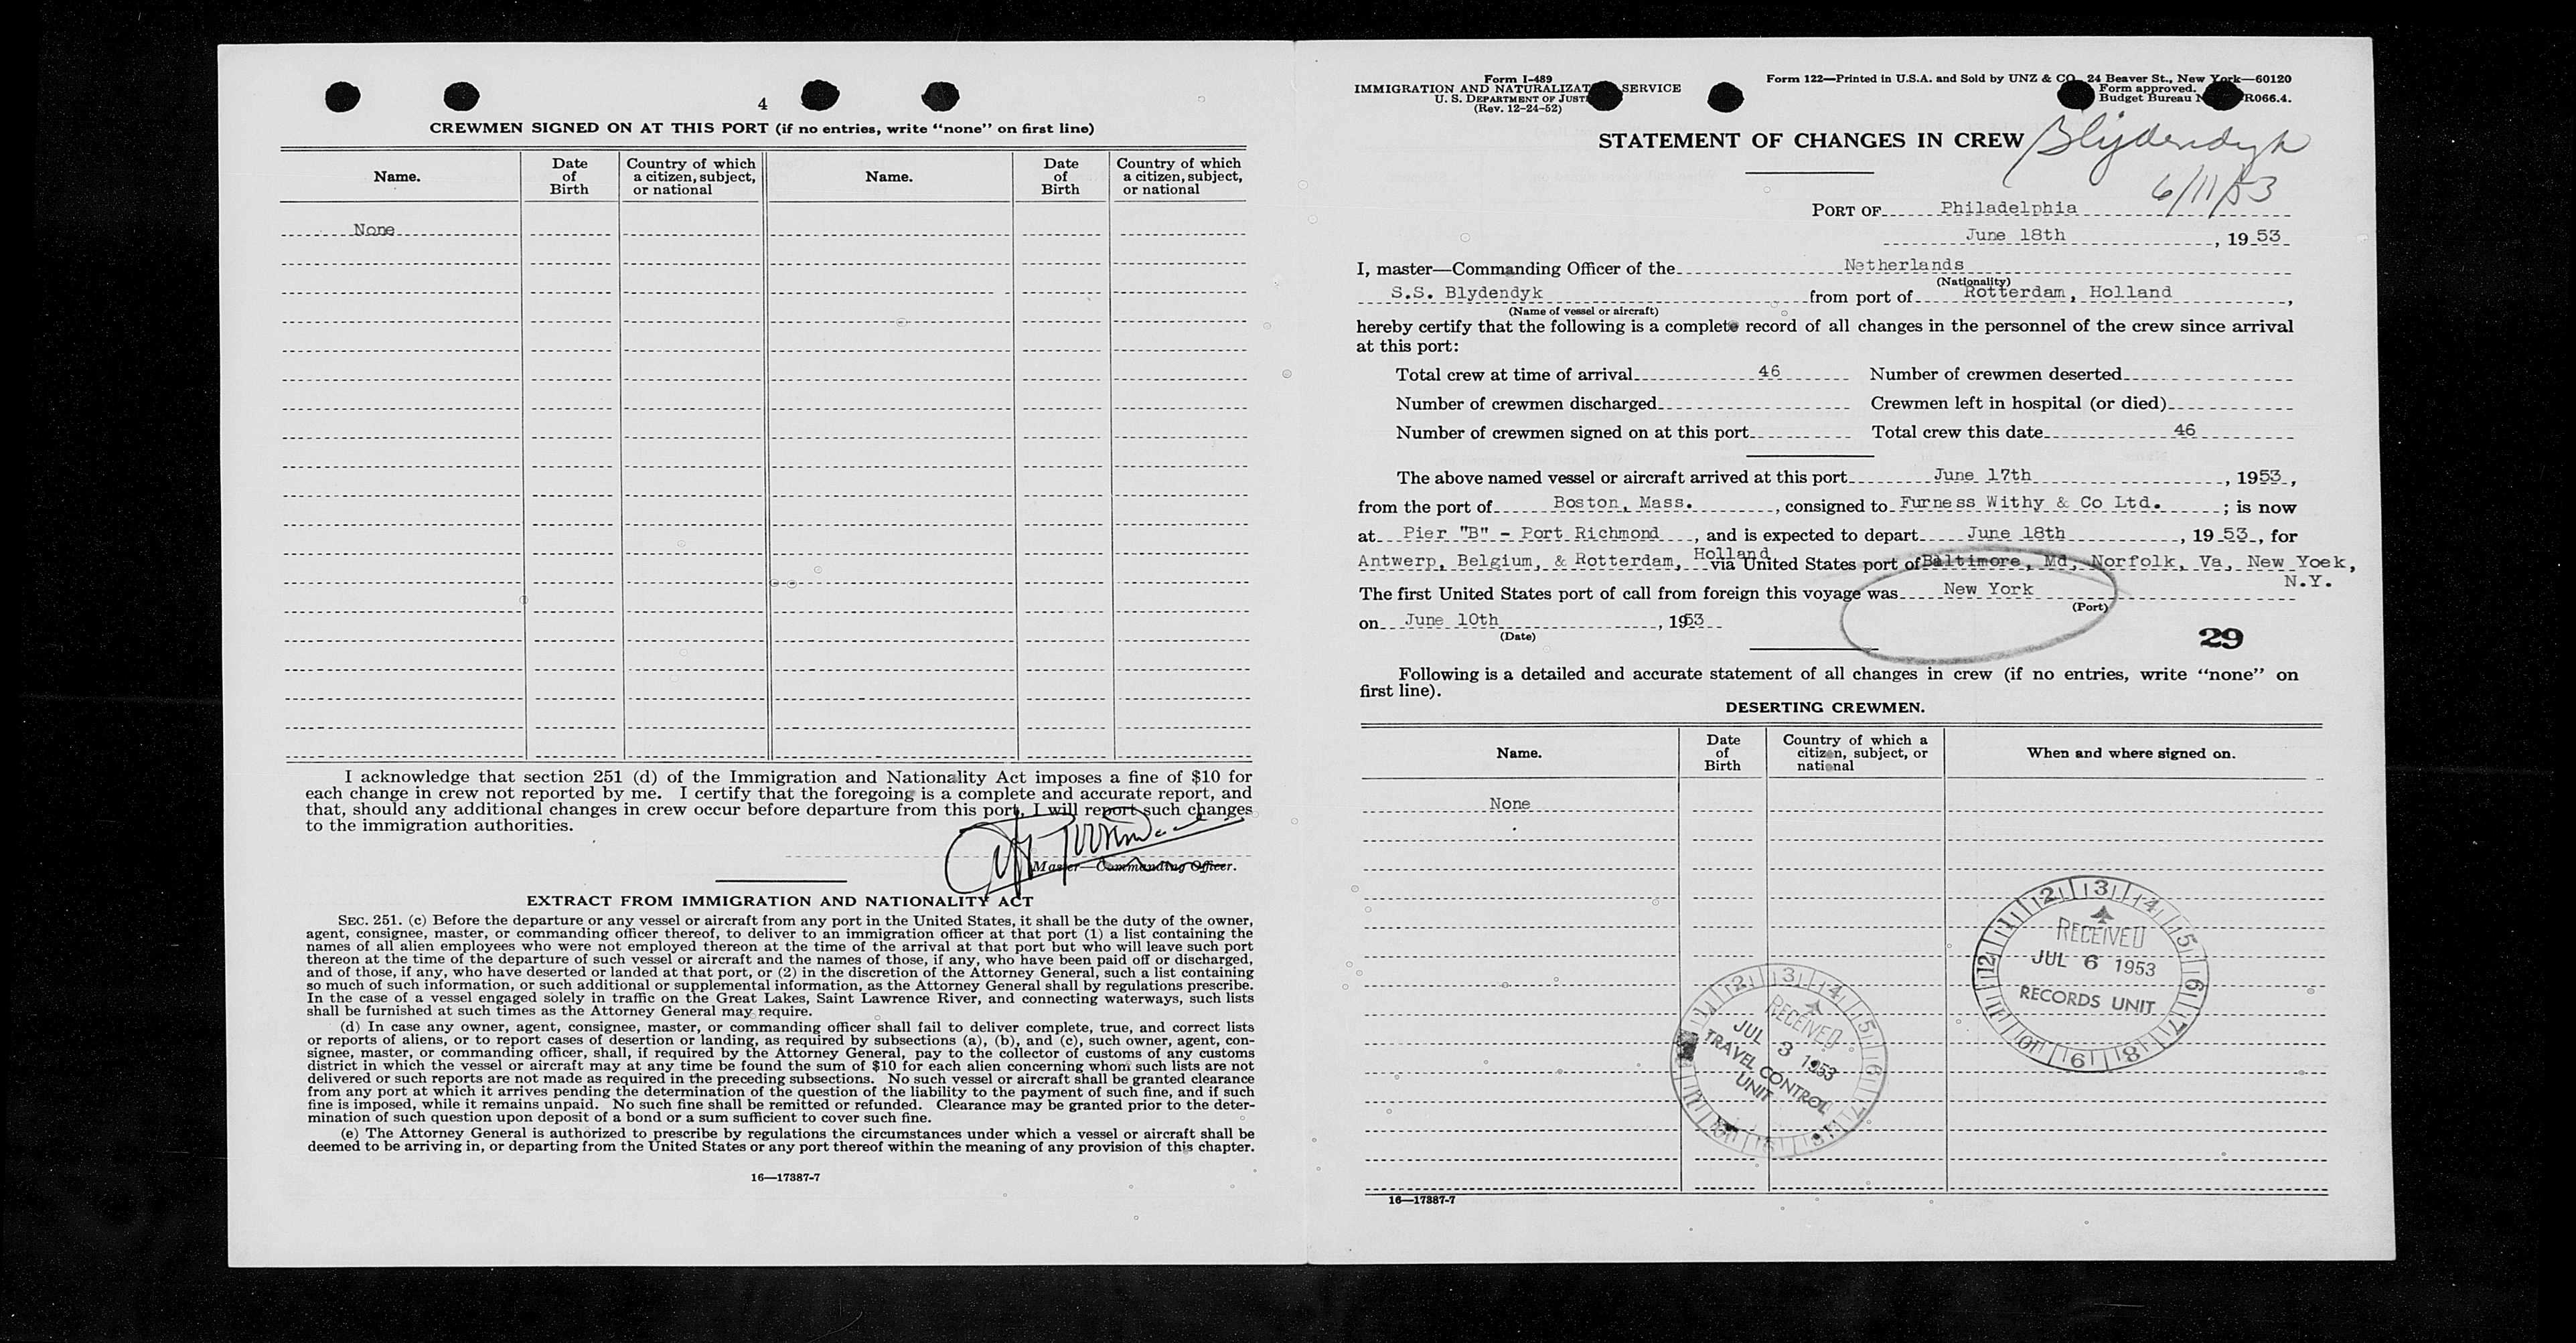 4
CREWMEN SIGNED ON AT THIS PORT (if no entries, write “none” on first line)
Name. Date of Birth Country of which a citizen, subject, or national Name. Date of Birth Country of which a citizen, subject, or national
None
I acknowledge that section 251 (d) of the Immigration and Nationality Act imposes a fine of $10 for
each change in crew not reported by me. I certify that the foregoing is a complete and accurate report, and
that, should any additional changes in crew occur before departure from this port, I will report such changes
to the immigration authorities.
Master—Commanding Officer.
EXTRACT FROM IMMIGRATION AND NATIONALITY ACT
SEC. 251. (c) Before the departure or any vessel or aircraft from any port in the United States, it shall be the duty of the owner,
agent, consignee, master, or commanding officer thereof, to deliver to an immigration officer at that port (1) a list containing the
names of all alien employees who were not employed thereon at the time of the arrival at that port but who will leave such port
thereon at the time of the departure of such vessel or aircraft and the names of those, if any, who have been paid off or discharged,
and of those, if any, who have deserted or landed at that port, or (2) in the discretion of the Attorney General, such a list containing
so much of such information, or such additional or supplemental information, as the Attorney General shall by regulations prescribe.
In the case of a vessel engaged solely in traffic on the Great Lakes, Saint Lawrence River, and connecting waterways, such lists
shall be furnished at such times as the Attorney General may require.
(d) In case any owner, agent, consignee, master, or commanding officer shall fail to deliver complete, true, and correct lists
or reports of aliens, or to report cases of desertion or landing, as required by subsections (a), (b), and (c), such owner, agent, con-
signee, master, or commanding officer, shall, if required by the Attorney General, pay to the collector of customs of any customs
district in which the vessel or aircraft may at any time be found the sum of $10 for each alien concerning whom such lists are not
delivered or such reports are not made as required in the preceding subsections. No such vessel or aircraft shall be granted clearance
from any port at which it arrives pending the determination of the question of the liability to the payment of such fine, and if such
fine is imposed, while it remains unpaid. No such fine shall be remitted or refunded. Clearance may be granted prior to the deter-
mination of such question upon deposit of a bond or a sum sufficient to cover such fine.
(e) The Attorney General is authorized to prescribe by regulations the circumstances under which a vessel or aircraft shall be
deemed to be arriving in, or departing from the United States or any port thereof within the meaning of any provision of this chapter.
16—17387-7
Form I-489
IMMIGRATION AND NATURALIZAT SERVICE
U. S. DEPARTMENT OF JUST
(Rev. 12-24-52)
Form 122—Printed in U.S.A. and Sold by UNZ & CO. 24 Beaver St., New York—60120
Form approved.
Budget Bureau N R066.4.
STATEMENT OF CHANGES IN CREW Blijdendyk
6/11/53
PORT OF Philadelphia
June 18th, 19 53
I, master—Commanding Officer of the Netherlands
(Nationality)
S.S. Blydendyk from port of Rotterdam, Holland,
(Name of vessel or aircraft)
hereby certify that the following is a complete record of all changes in the personnel of the crew since arrival
at this port:
Total crew at time of arrival 46 Number of crewmen deserted
Number of crewmen discharged Crewmen left in hospital (or died)
Number of crewmen signed on at this port Total crew this date 46
The above named vessel or aircraft arrived at this port June 17th, 1953,
from the port of Boston, Mass., consigned to Furness Withy & Co Ltd. ; is now
at Pier "B" - Port Richmond, and is expected to depart June 18th, 19 53, for
Antwerp, Belgium, & Rotterdam, Holland via United States port of Baltimore, Md, Norfolk, Va, New Yoek,
N.Y.
The first United States port of call from foreign this voyage was New York
(Port)
on June 10th, 1953
(Date)
29
Following is a detailed and accurate statement of all changes in crew (if no entries, write “none” on
first line).
DESERTING CREWMEN.
Name. Date of Birth Country of which a citizen, subject, or national When and where signed on.
None
RECEIVED
JUL 6 1953
RECORDS UNIT
RECEIVED
JUL 3 1953
TRAVEL CONTROL
UNIT
16—17387-7